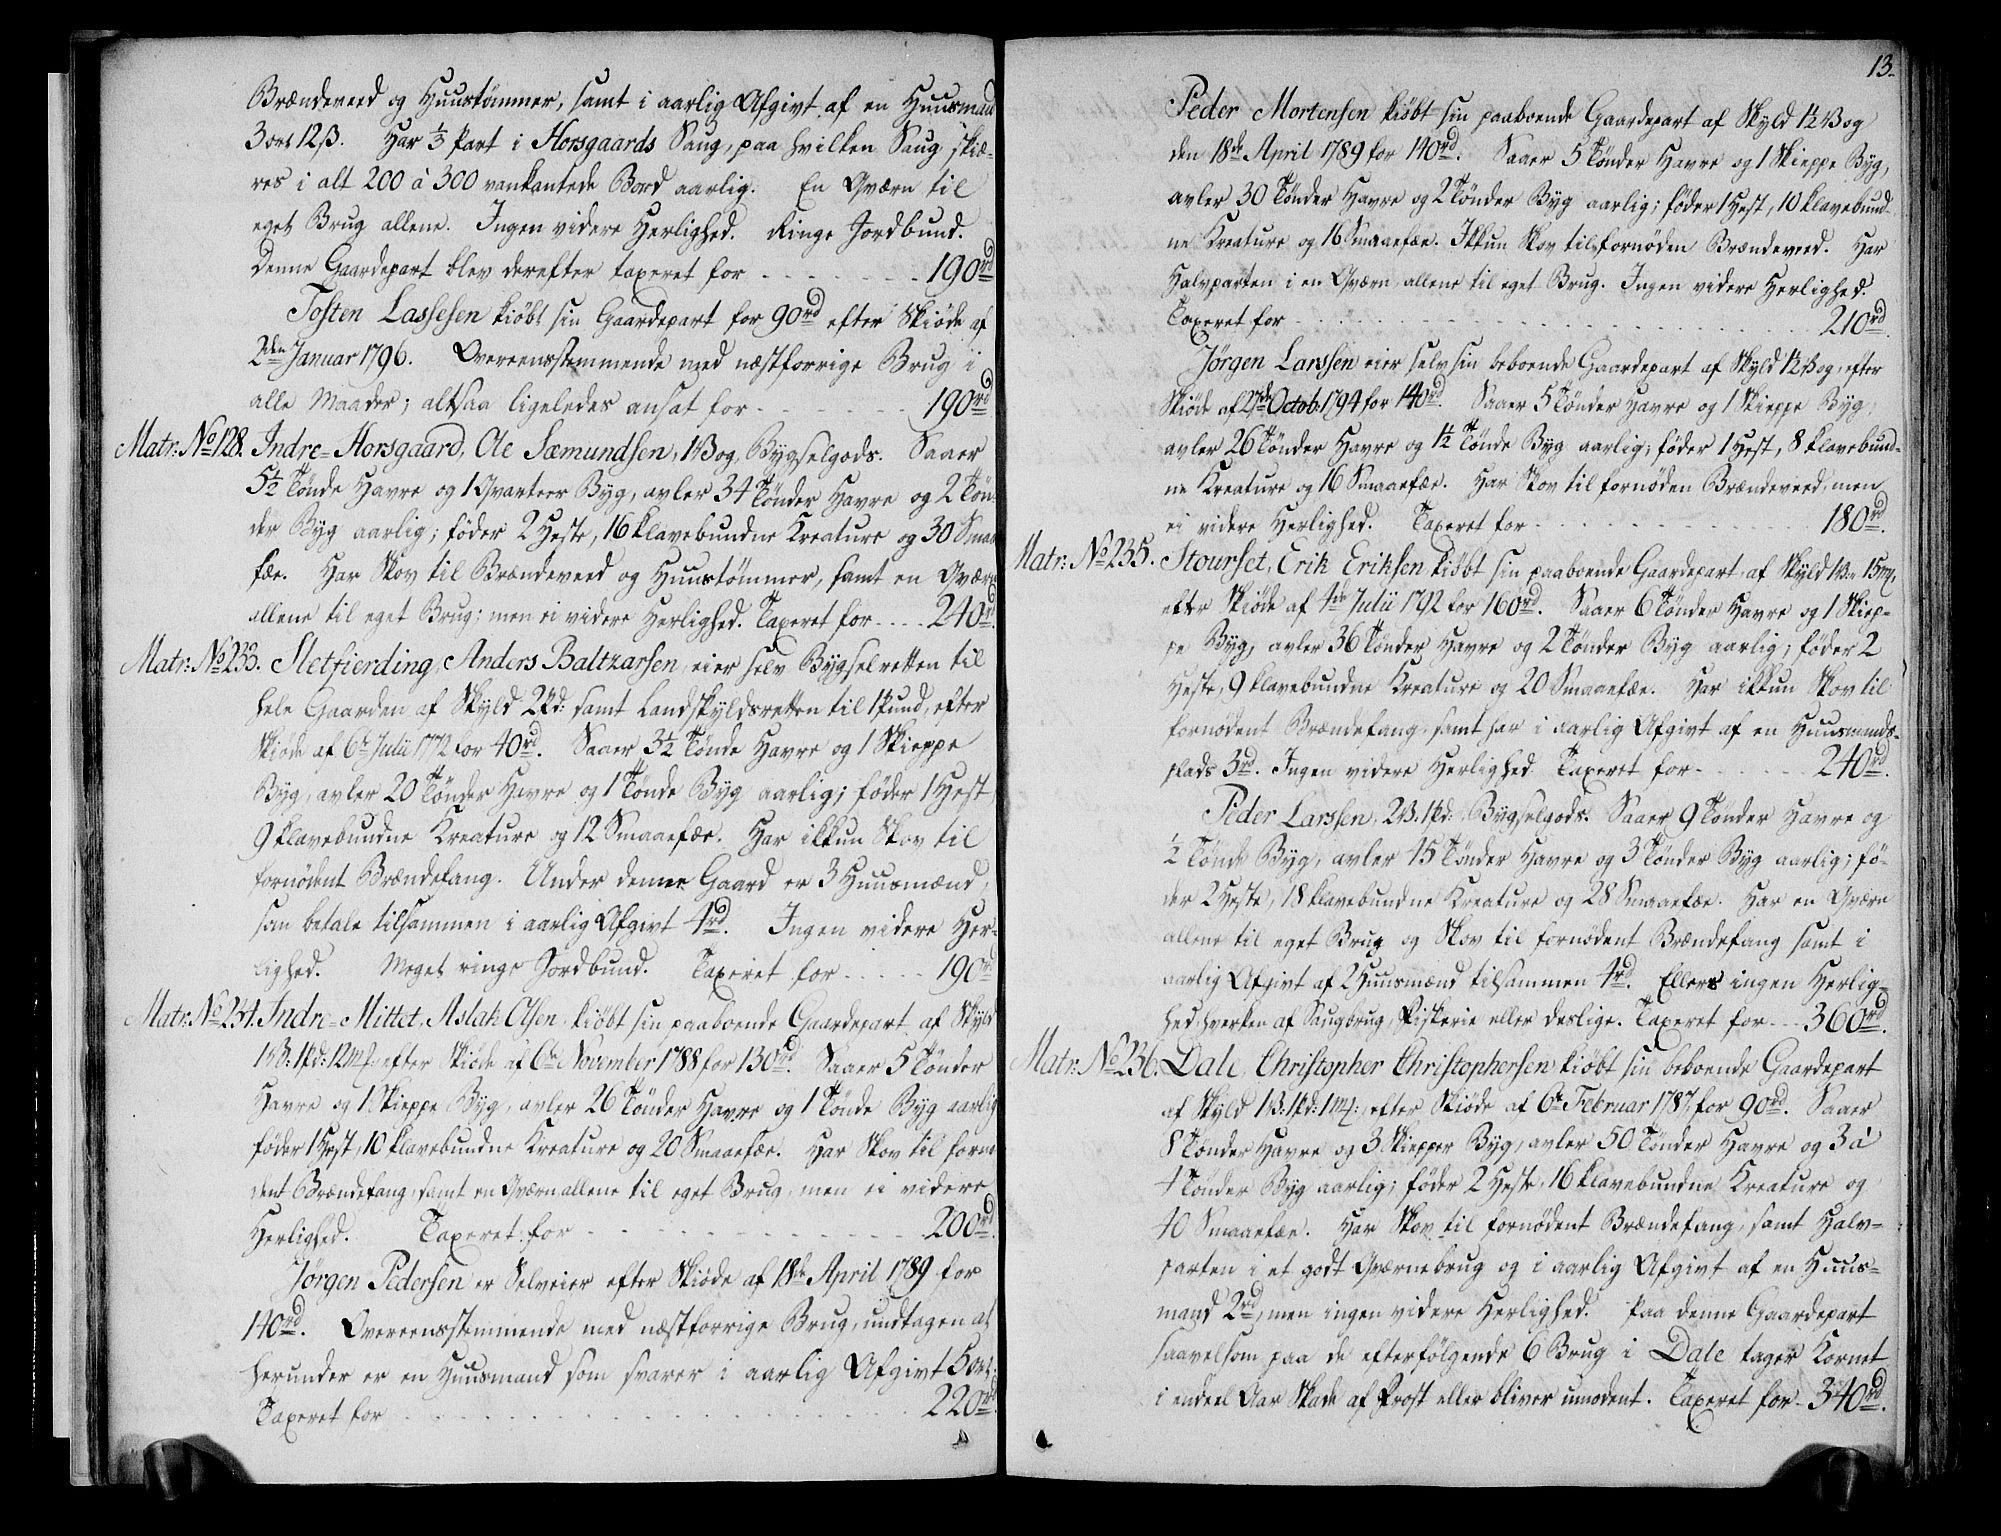 Brændeveed og Huustømmer, samt i aarlig Afgivt af en Huusmand
3 ort 12 ß. Har 1/3 Part i Horsgaards Saug, paa hvilken Saug skiæ-
res i alt 200 à 300 vankantede Bord aarlig. En Qværn til
eget Brug allene. Ingen videre Herlighed. Ringe Jordbund.
Denne Gaardepart blev derefter taxeret for - - - - - 190 rd
Tosten Lassesen kiøbt sin Gaardepart for 90 rd efter Skiøde af
2den Januar 1796. Overeensstemmende med næstforrige Brug i
alle Maader; altsaa ligeledes ansat for - - - - - 190 rd
Matr: No 128. Indre-Horsgaard, Ole Sæmundsen, 1 Vog, Bygselgods. Saaer
5½ Tønde Havre og 1 Qvarteer Byg, avler 34 Tønder Havre og 2 Tøn-
der Byg aarlig; føder 2 Heste, 16 klavebundne Kreature og 30 Smaae
fæe. Har Skov til Brændeveed og Huustømmer, samt en Qværn
allene til eget Brug; men ei videre Herlighed. Taxeret for - - - - 240 rd.
Matr: No 233. Sletfierding, Anders Baltzarsen, eier selv Bygselretten til
hele Gaarden af Skyld 2 Pd: samt Landskyldsretten til 1 Pund, efter
Skiøde af 6te Julii 1772 for 40 rd. Saaer 3½ Tønde Havre og 1 Skieppe
Byg, avler 20 Tønder Havre og 1 Tønde Byg aarlig; føder 1 Hest,
9 klavebundne Kreature og 12 Smaaefæe. Har ikkun Skov til
fornødent Brændefang. Under denne Gaard er 3 Huusmænd,
som betale tilsammen i aarlig Afgivt 4 rd. Ingen videre Her-
lighed. Meget ringe Jordbund. Taxeret for - - - - - 190 rd
Matr: No 234. Indre-Mittet, Aslak Olsen, kiøbt sin paaboende Gaardepart af Skyld
1 V: 1 Pd: 12 mk: efter Skiøde af 6te November 1788 for 130 rd. Saaer 5 Tønder
Havre og 1 Skieppe Byg, avler 26 Tønder Havre og 1 Tønde Byg aarlig
føder 1 Hest, 10 klavebundne Kreature og 20 Smaaefæe. Har Skov til fornø-
dent Brændefang, samt en Qværn allene til eget Brug, men ei videre
Herlighed. Taxeret for - - - - - 200 rd.
Jørgen Pedersen er Selveier efter Skiøde af 18de April 1789 for
140 rd. Overeensstemmende med næstforrige Brug, undtagen at
herunder er en Huusmand som svarer i aarlig Afgivt 5 ort.
Taxeret for - - - - - 220 rd.
13.
Peder Mortensen kiøbt sin paaboende Gaardepart af Skyld 1½ Vog
den 18de April 1789 for 140 rd. Saaer 5 Tønder Havre og 1 Skieppe Byg,
avler 30 Tønder Havre og 2 Tønder Byg aarlig; føder 1 Hest, 10 klavebund-
ne Kreature og 16 Smaaefæe. Ikkun Skov til fornøden Brændeveed. Har
Halvparten i en Qværn allene til eget Brug. Ingen videre Herlighed.
Taxeret for - - - - - 210 rd.
Jørgen Larssen eier selv sin beboende Gaardepart af Skyld 1½ Vog, efter
Skiøde af 27de Octob: 1794 for 140 rd. Saaer 5 Tønder Havre og 1 Skieppe Byg,
avler 26 Tønder Havre og 1½ Tønde Byg aarlig; føder 1 Hest, 8 klavebund-
ne Kreature og 16 Smaaefæe. Har Skov til fornøden Brændeveed, men
ei videre Herlighed. Taxeret for - - - - - 180 rd.
Matr: No 235. Stourset, Erik Eriksen kiøbt sin paaboende Gaardepart af Skyld 1 V: 15 mk,
efter Skiøde af 4de Julii 1792 for 160 rd. Saaer 6 Tønder Havre og 1 Skiep-
pe Byg, avler 36 Tønder Havre og 2 Tønder Byg aarlig; føder 2
Heste, 9 klavebundne Kreature og 20 Smaaefæe. Har ikkun Skov til
fornødent Brændefang, samt har i aarlig Afgivt af en Huusmands-
plads 3 rd. Ingen videre Herlighed. Taxeret for - - - - - 240 rd.
Peder Larssen, 2 V. 1 Pd: Bygselgods. Saaer 9 Tønder Havre og
½ Tønde Byg, avler 45 Tønder Havre og 3 Tønder Byg aarlig; fø-
der 2 Heste, 18 klavebundne Kreature og 28 Smaaefæe. Har en Qværn
allene til eget Brug og Skov til fornødent Brændefang samt i
aarlig Afgivt af 2 Huusmænd tilsammen 4 rd. Ellers ingen Herlig-
hed hverken af Saugbrug, Fiskerie eller deslige. Taxeret for - - - 360 rd.
Matr: No 236. Dale, Christopher Christophersen kiøbt sin beboende Gaardepart
af Skyld 1 V: 1 Pd: 1 mk:, efter Skiøde af 6te Februar 1787, for 90 rd. Saaer
8 Tønder Havre og 3 Skiepper Byg, avler 50 Tønder Havre og 3 à
4 Tønder Byg aarlig; føder 2 Heste, 16 klavebundne Kreature og
40 Smaaefæe. Har Skov til fornødent Brændefang, samt Halv-
parten i et godt Qværnebrug og i aarlig Afgivt af en Huus-
mand 2 rd, men ingen videre Herlighed. Paa denne Gaardepart
saavelsom paa de efterfølgende 6 Brug i Dale tager Kornet
i endeel Aar Skade af Frost eller bliver umodent. Taxeret for - 340 rd.